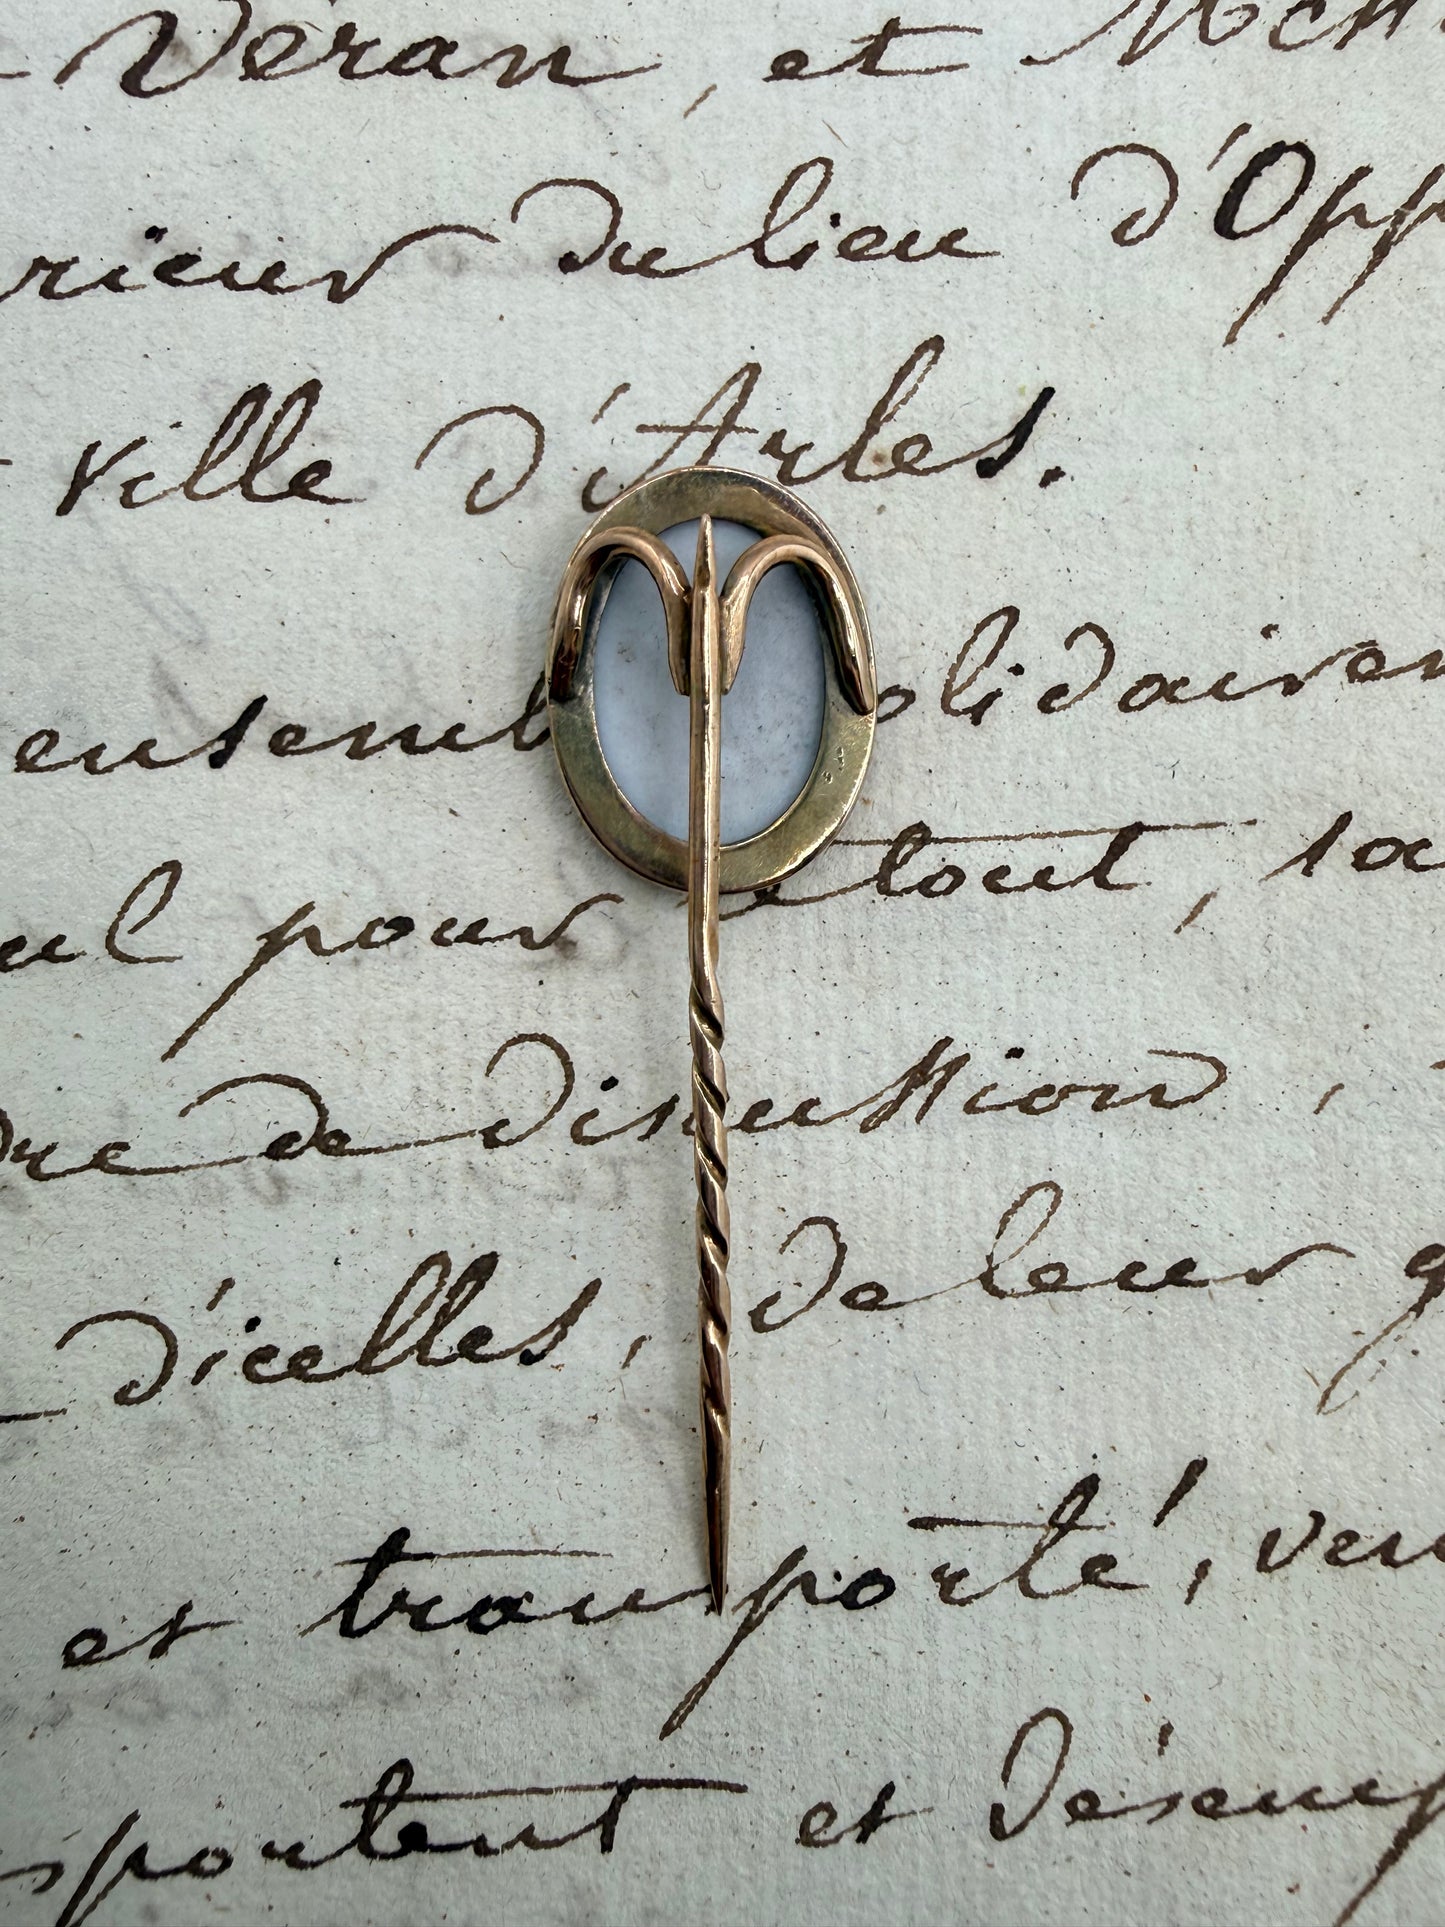 Véran, et
rieur du lieu d'Opp
ville d'Arles.
ensemb olidairem
ul pour le tout, sa
dre de discussion,
d'icelles, de leur
et transporté, ven
sportent et désemp